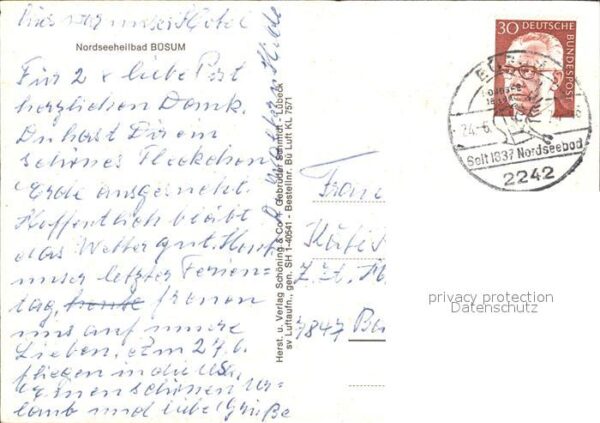 Dies war unser Hotel
Nordseeheilbad BÜSUM
Für 2 x liebe Post
herzlichen Dank.
Du hast Dir ein
schönes Fleckchen
Erde ausgesucht.
Hoffentlich bleibt
das Wetter gut. Heute
unser letzter Ferien=
tag, freuen
uns auf unsere
Lieben. Am 27.6.
fliegen in die USA.
schönen Ur-
laub und liebe Grüße
Herst. u. Verlag Schöning & Co + Gebrüder Schmidt - Lübeck
sv Luftaufn., gen. SH 1-40541 - Bestellnr. Bü Luft KL 7571
30 DEUTSCHE
BUNDESPOST
24.-6.
Seit 1837 Nordseebad
2242
Frau
Käti
z. Zt.
7847 Ba
privacy protection
Datenschutz